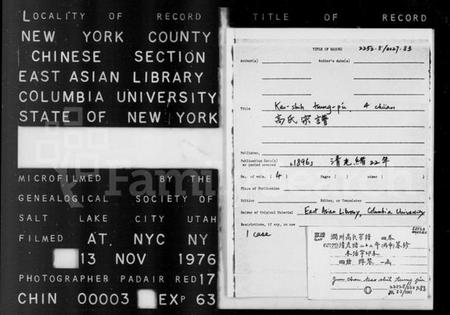 LOCALITY OF RECORD
NEW YORK COUNTY
CHINESE SECTION
EAST ASIAN LIBRARY
COLUMBIA UNIVERSITY
STATE OF NEW YORK
MICROFILMED BY THE
GENEALOGICAL SOCIETY OF
SALT LAKE CITY UTAH
FILMED AT, NYC NY
13 NOV 1976
PHOTOGRAPHER PADAIR RED 17
CHIN 00003 EXP 63
TITLE OF RECORD
TITLE OF RECORD 2252.8/0027.83
Author(s)
Author's date(s)
Title Kao-shih tsung-p'u 4 chüan
高氏宗譜
Publisher
Publication Date(s) or period covered (1896) 清光緒22年
No. of vols. (4) Pages ( ) other ( )
Place of Publication
Edition Editor, or Translator
Owner of Original Material East Asian Library, Columbia University
Restrictions, if any, on use
1 case
潤州高氏宗譜 四卷